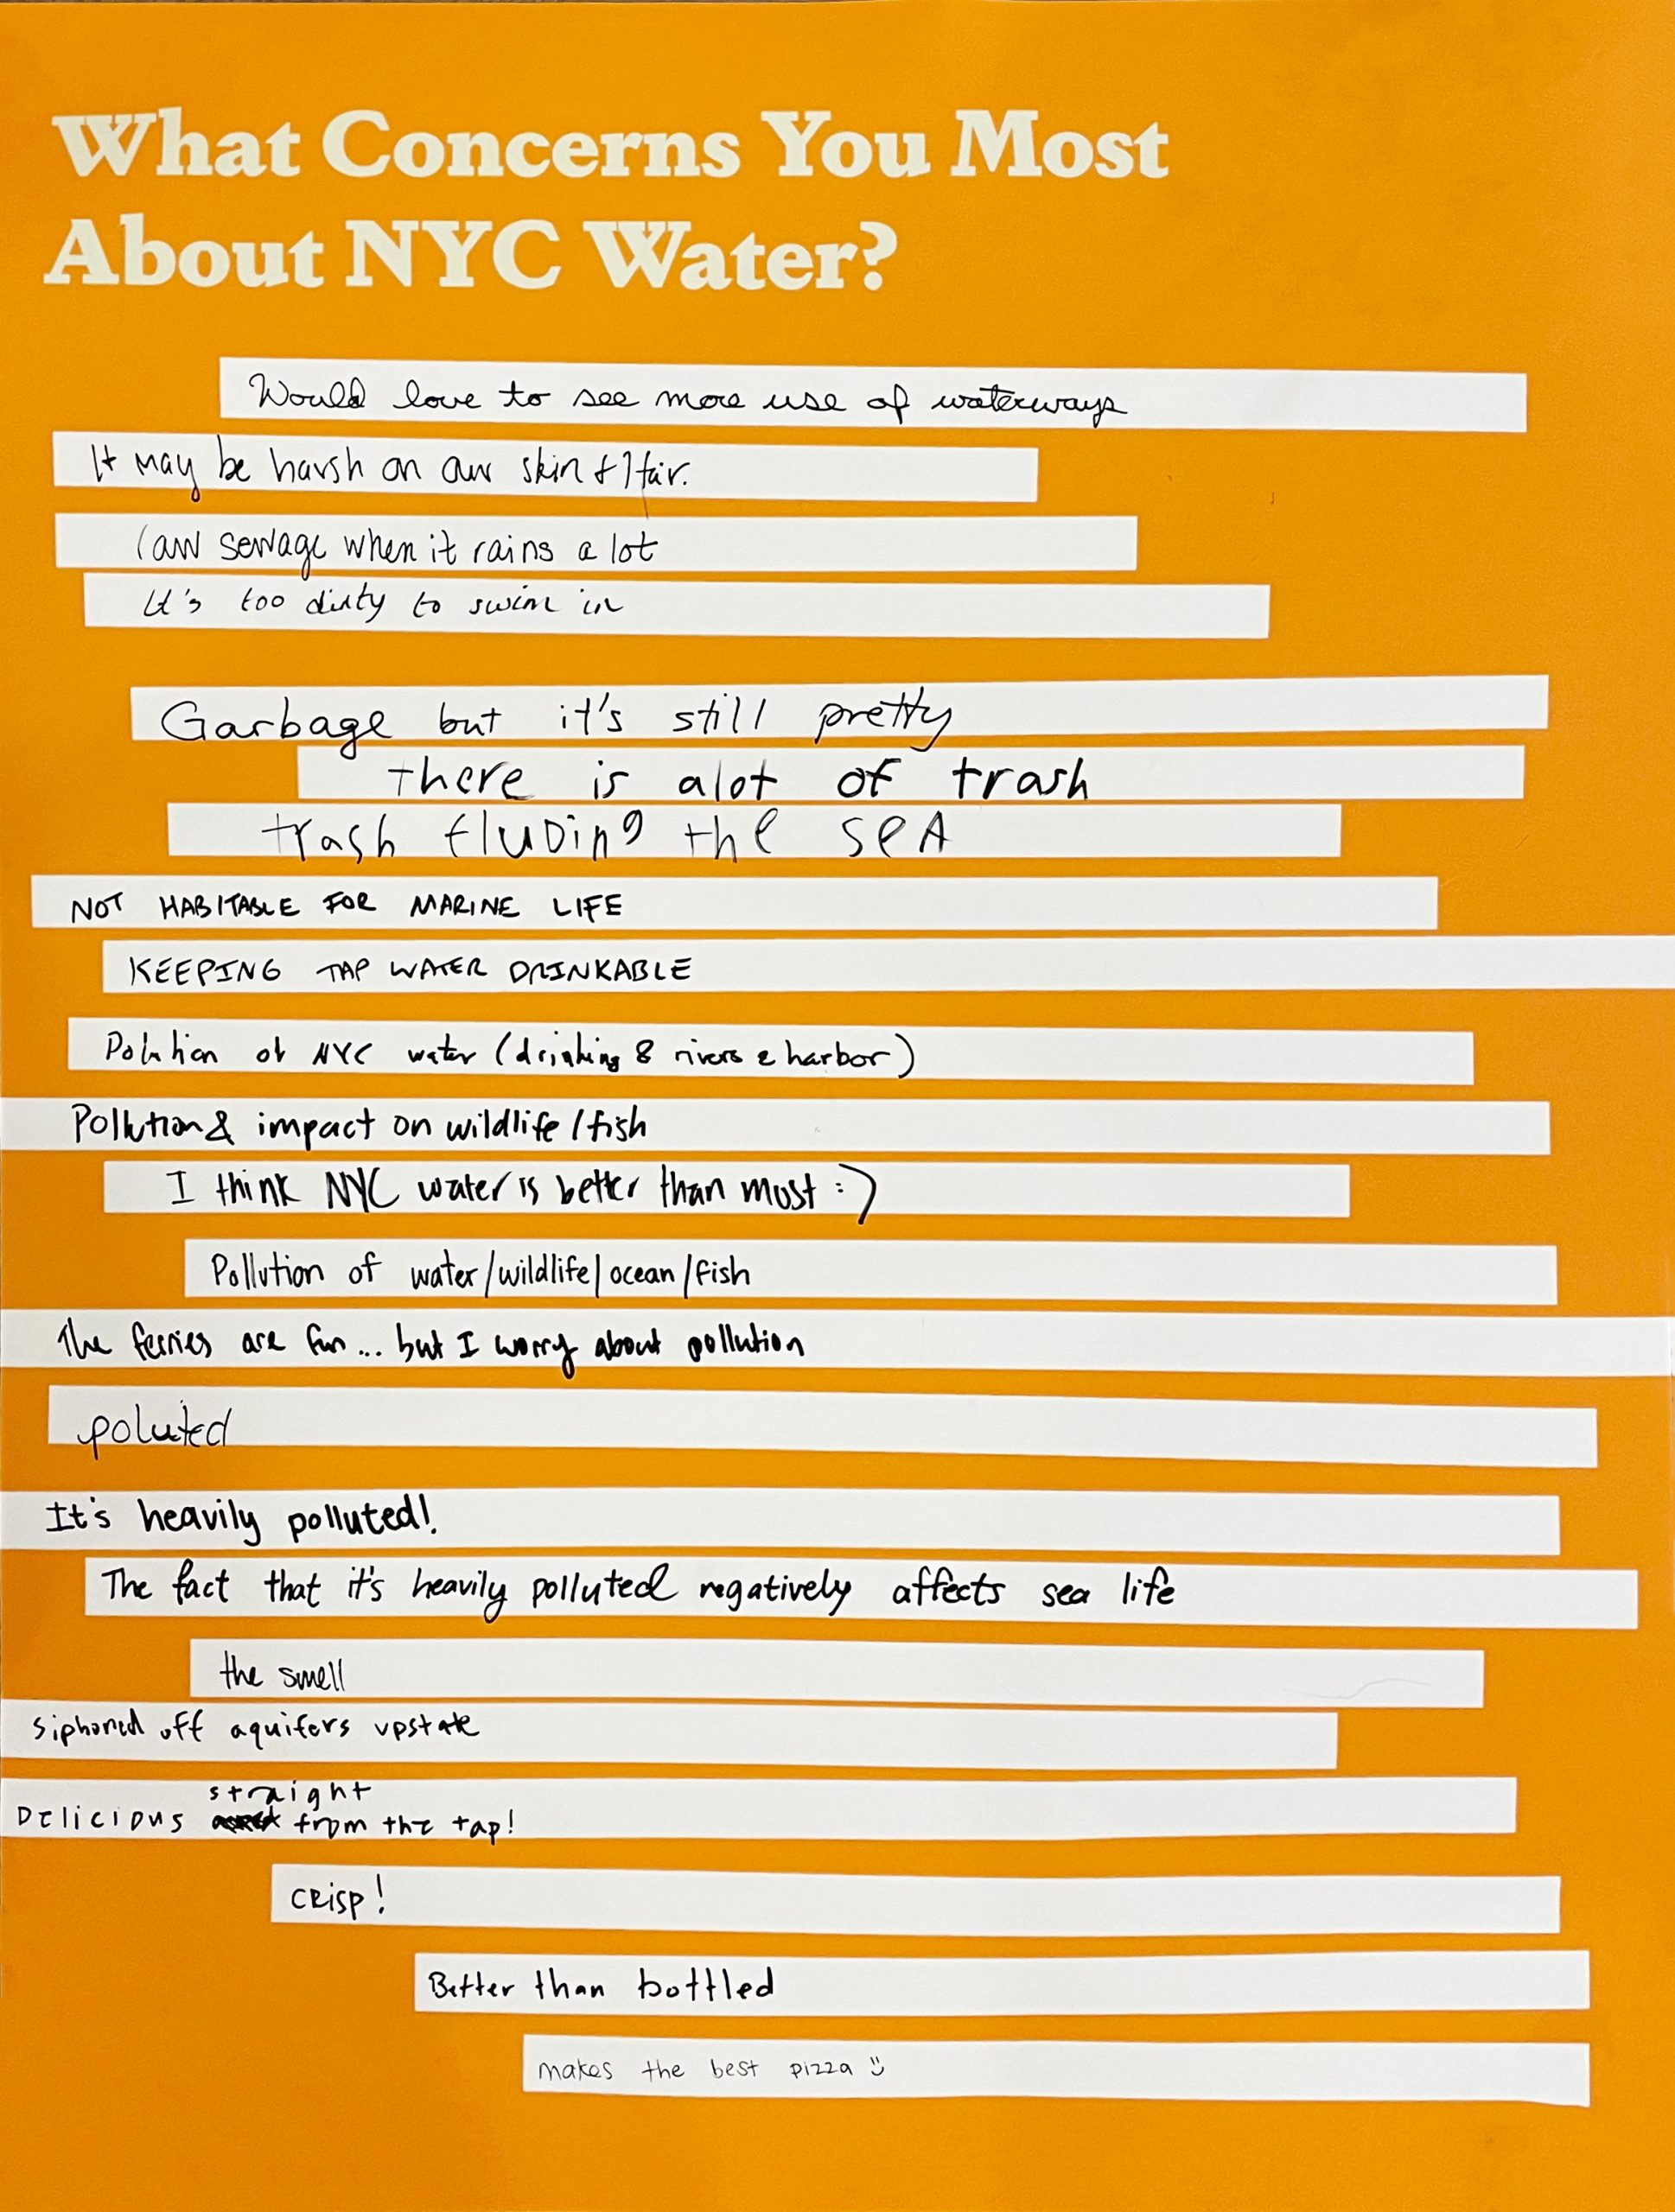 What Concerns You Most
About NYC Water?
Would love to see more use of waterways
It may be harsh on our skin + Hair.
raw sewage when it rains a lot
It's too dirty to swim in
Garbage but it's still pretty
there is alot of trash
trash fluDing the seA
NOT HABITABLE FOR MARINE LIFE
KEEPING TAP WATER DRINKABLE
Polution of NYC water (drinking & rivers & harbor)
Pollution & impact on wildlife/fish
I think NYC water is better than most :)
Pollution of water/wildlife/ocean/fish
The ferries are fun... but I worry about pollution
poluted
It's heavily polluted!
The fact that it's heavily polluted negatively affects sea life
the smell
siphoned off aquifers upstate
straight
Delicious from the tap!
CRisp!
Better than bottled
makes the best pizza